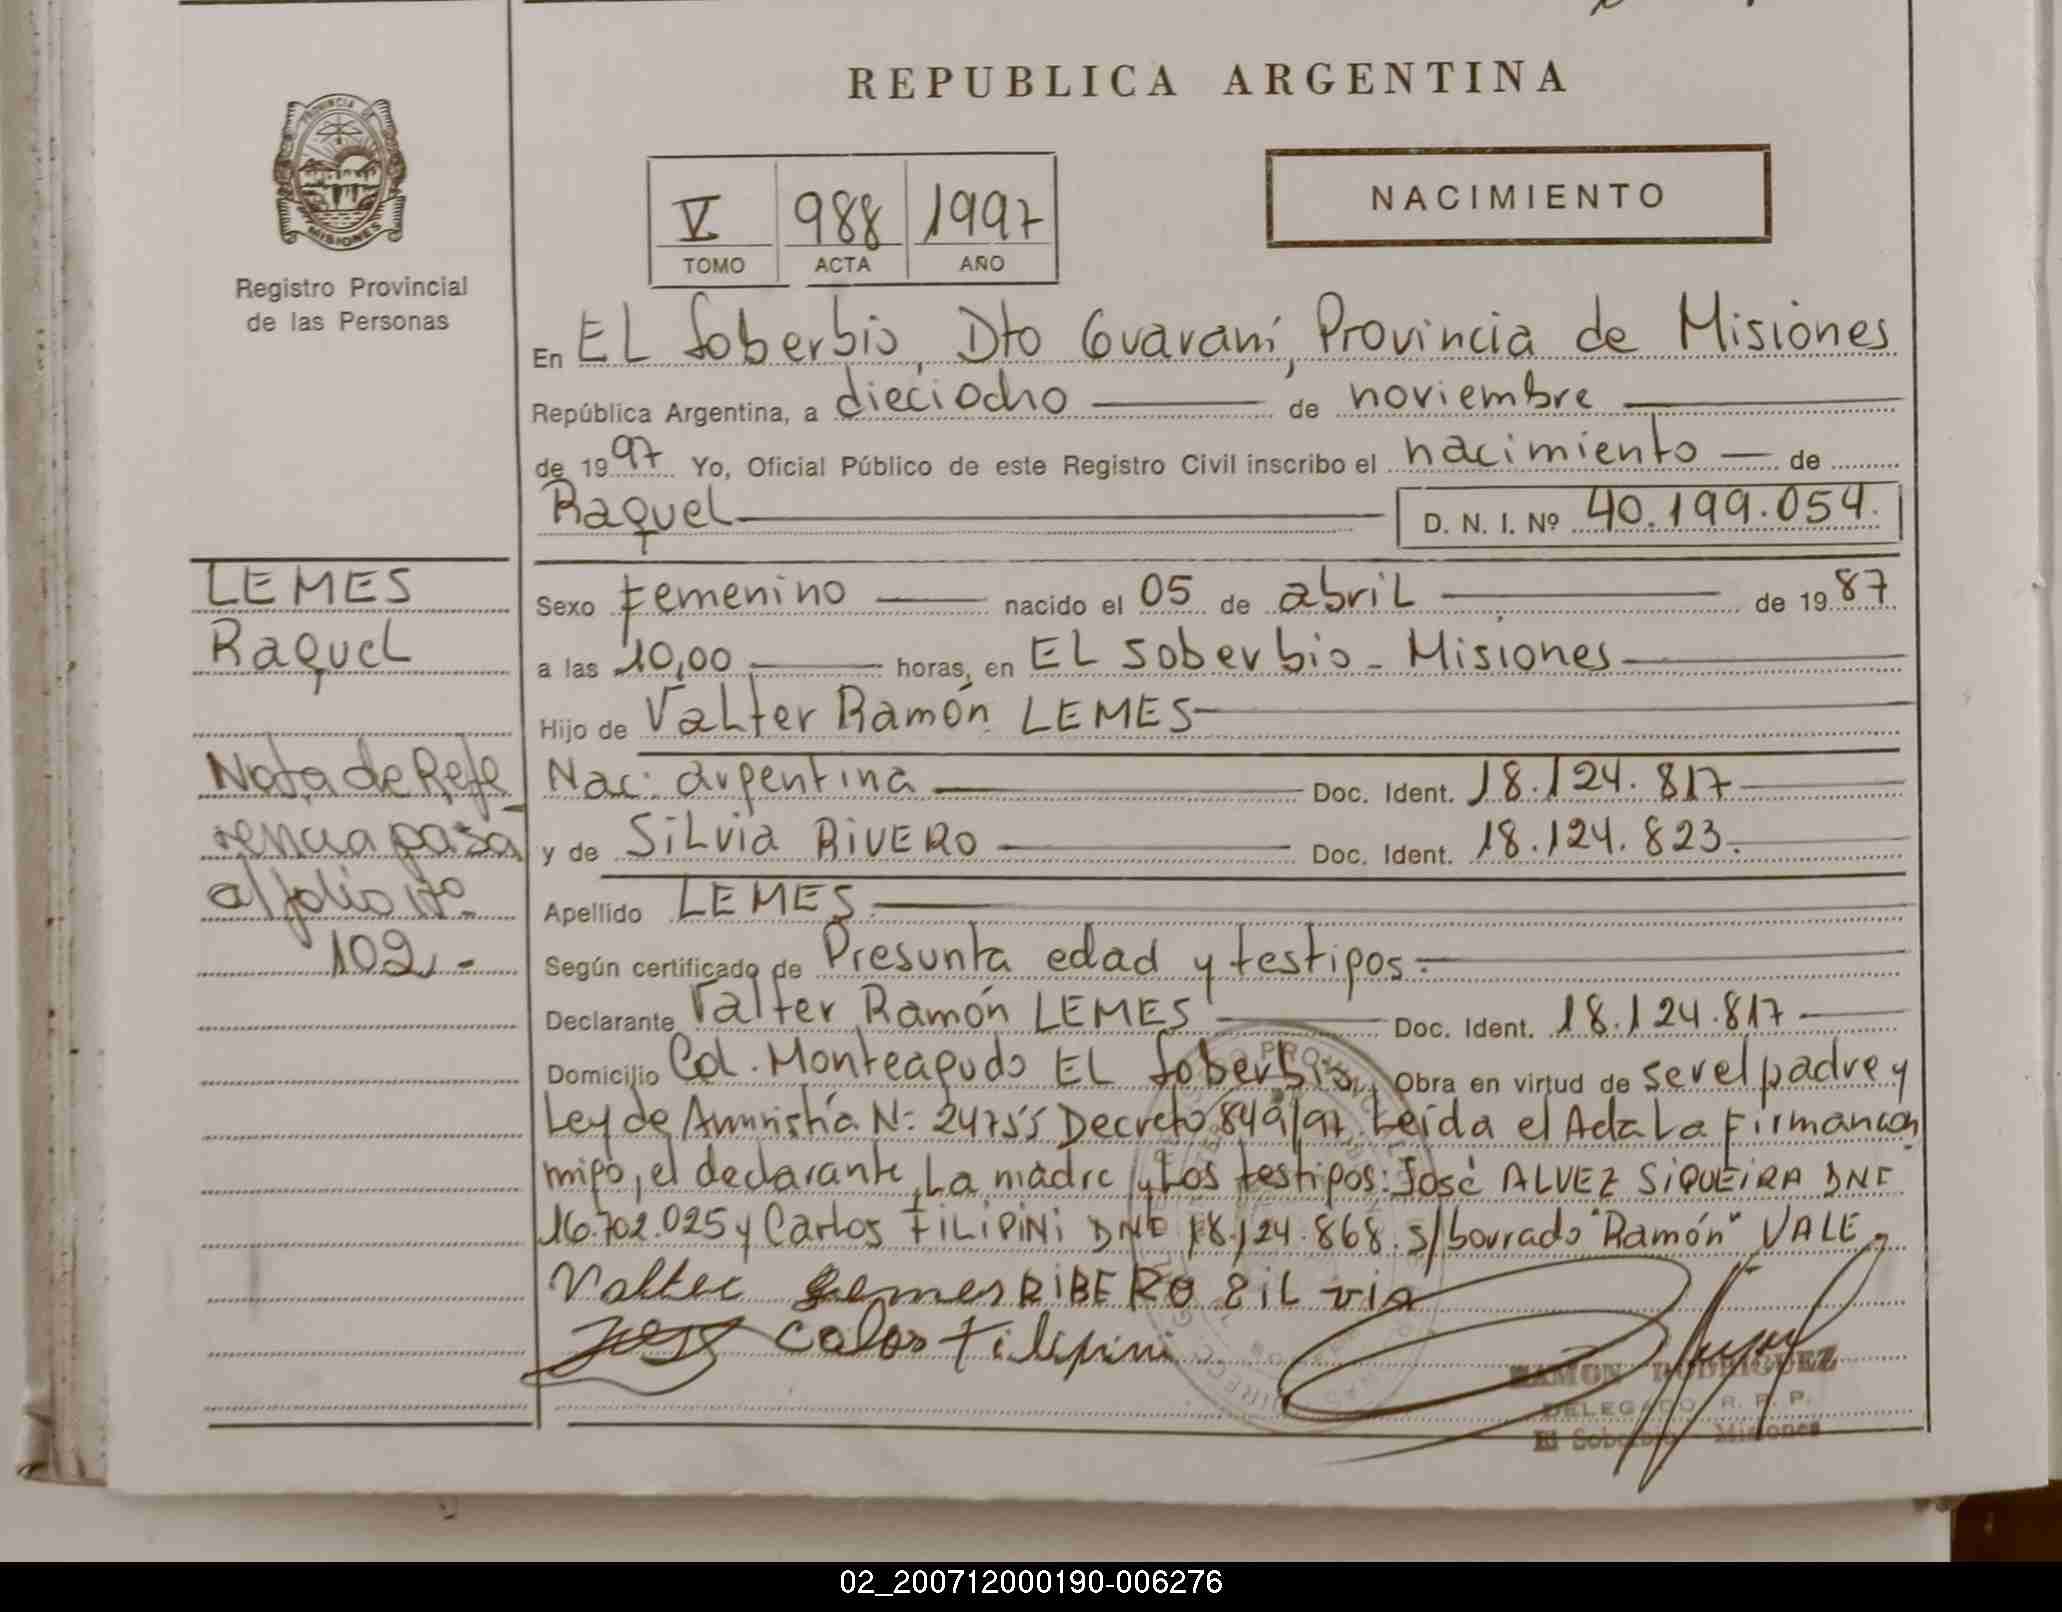 REPUBLICA ARGENTINA
PROVINCIA DE
MISIONES
Registro Provincial
de las Personas
NACIMIENTO
V 988 1997
TOMO ACTA AÑO
En EL Soberbio, Dto Guaraní, Provincia de Misiones
República Argentina, a dieciocho de noviembre
de 1997 Yo, Oficial Público de este Registro Civil inscribo el nacimiento de
Raquel D. N. I. Nº 40.199.054.
LEMES
Raquel
Nota de Refe
rencia pasa
al folio Nº
102.-
Sexo femenino nacido el 05 de abril de 1987
a las 10,00 horas, en EL Soberbio - Misiones
Hijo de Valter Ramón LEMES
Nac: argentina Doc. Ident. 18.124.817
y de SiLvia RiVERO Doc. Ident. 18.124.823.
Apellido LEMES
Según certificado de Presunta edad y testigos.
Declarante Valter Ramón LEMES Doc. Ident. 18.124.817
Domicilio Col. Monteagudo EL Soberbio, Obra en virtud de ser el padre y
Ley de Amnistía N: 24755 Decreto 849/97. Leída el Acta La Firman con
migo, el declarante, La madre y Los testigos: José ALVEZ SiQUEiRA DNI
16.702.025 y Carlos FiLiPiNi DNI 18.124.868. s/borrado "Ramón" VALE.
Valter Lemes RIBERO SiLviA
Calos Filipini
RAMON RODRIGUEZ
DELEGADO R. P. P.
El Soberbio - Misiones
02_200712000190-006276